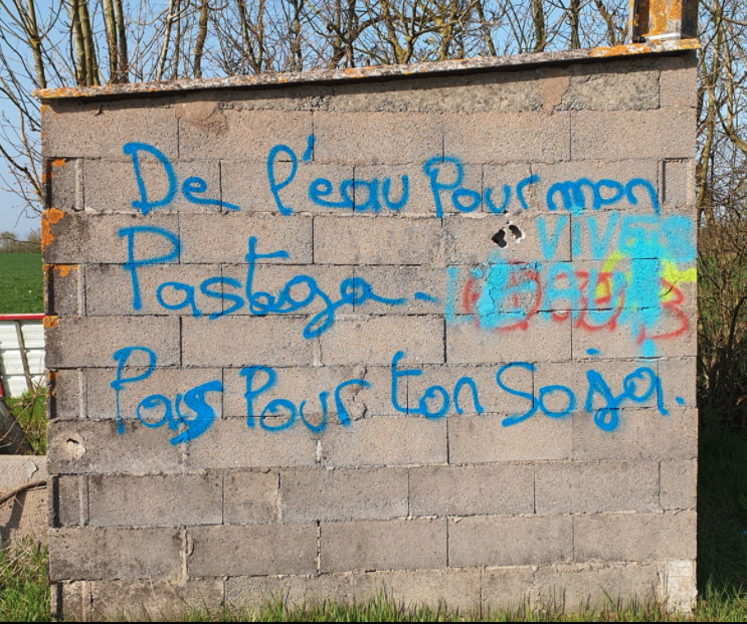 De l'eau Pour mon
Pastaga -
Pas Pour ton Soja.
VIVE